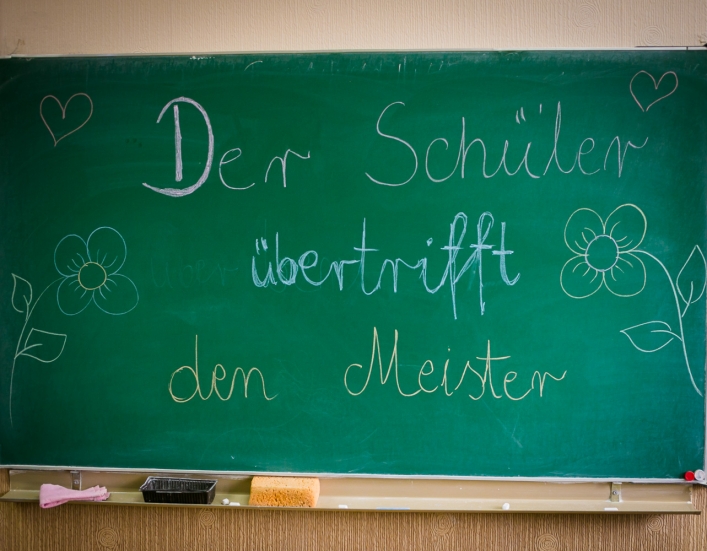 Der Schüler
übertrifft
den Meister